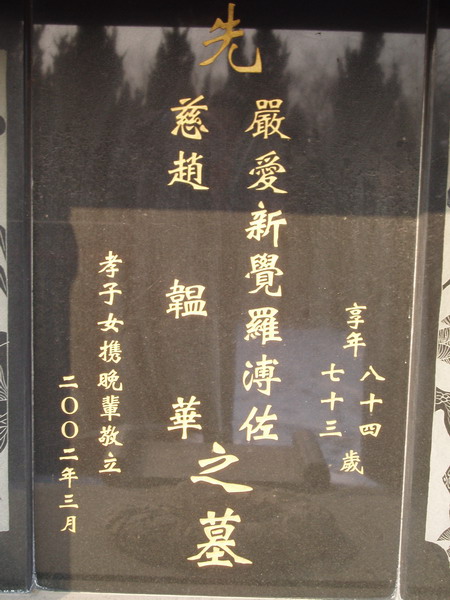 享年 八十四 七十三 歲
先
嚴愛新覺羅溥佐
慈趙韞華
之墓
孝子女携晚輩敬立
二〇〇二年三月